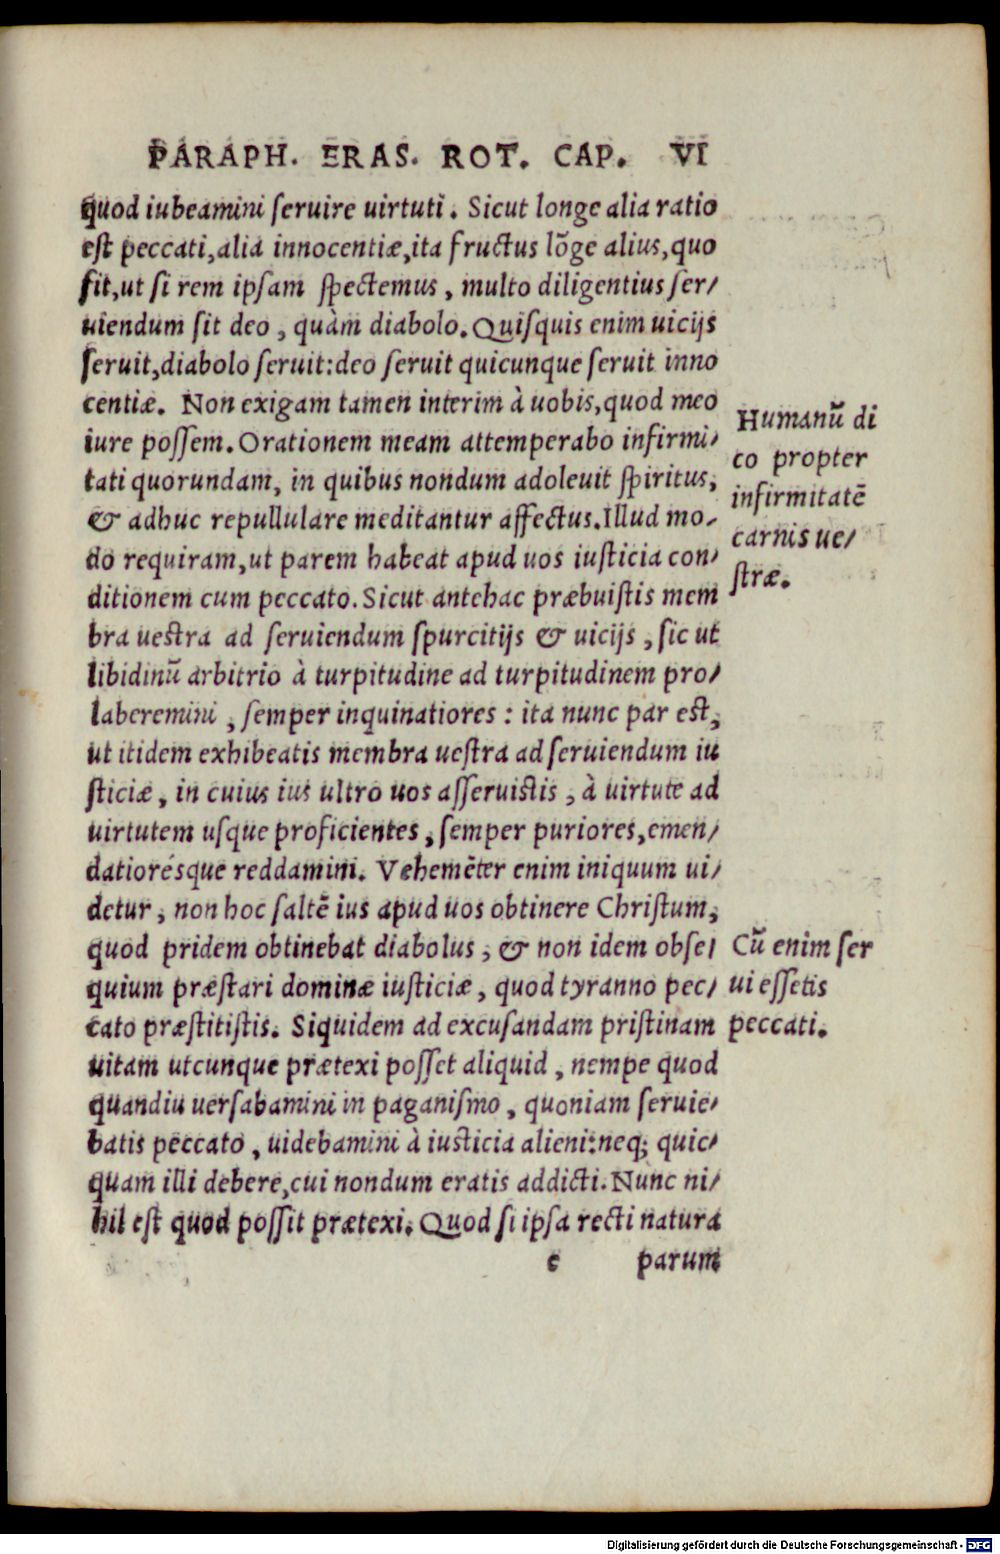 PARAPH. ERAS. ROT. CAP. VI
quod iubeamini seruire uirtuti. Sicut longe alia ratio
est peccati, alia innocentiæ, ita fructus lõge alius, quo
fit, ut si rem ipsam spectemus, multo diligentius ser/
uiendum sit deo, quàm diabolo. Quisquis enim uicijs
seruit, diabolo seruit: deo seruit quicunque seruit inno
centiæ. Non exigam tamen interim à uobis, quod meo
iure possem. Orationem meam attemperabo infirmi/
tati quorundam, in quibus nondum adoleuit spiritus,
& adhuc repullulare meditantur affectus. Illud mo/
do requiram, ut parem habeat apud uos iusticia con/
ditionem cum peccato. Sicut antehac præbuistis mem
bra uestra ad seruiendum spurcitijs & uicijs, sic ut
libidinũ arbitrio à turpitudine ad turpitudinem pro/
laberemini, semper inquinatiores: ita nunc par est,
ut itidem exhibeatis membra uestra ad seruiendum iu
sticiæ, in cuius ius ultro uos asseruistis, à uirtute ad
uirtutem usque proficientes, semper puriores, emen/
datiorésque reddamini. Vehemẽter enim iniquum ui/
detur, non hoc saltẽ ius apud uos obtinere Christum,
quod pridem obtinebat diabolus, & non idem obse/
quium præstari dominæ iusticiæ, quod tyranno pec/
cato præstitistis. Siquidem ad excusandam pristinam
uitam utcunque prætexi posset aliquid, nempe quod
quandiu uersabamini in paganismo, quoniam seruie/
batis peccato, uidebamini à iusticia alieni: neq; quic/
quam illi debere, cui nondum eratis addicti. Nunc ni/
hil est quod possit prætexi. Quod si ipsa recti natura
c parum
Humanũ di
co propter
infirmitatẽ
carnis ue/
stræ.
Cũ enim ser
ui essetis
peccati.
Digitalisierung gefördert durch die Deutsche Forschungsgemeinschaft - DFG